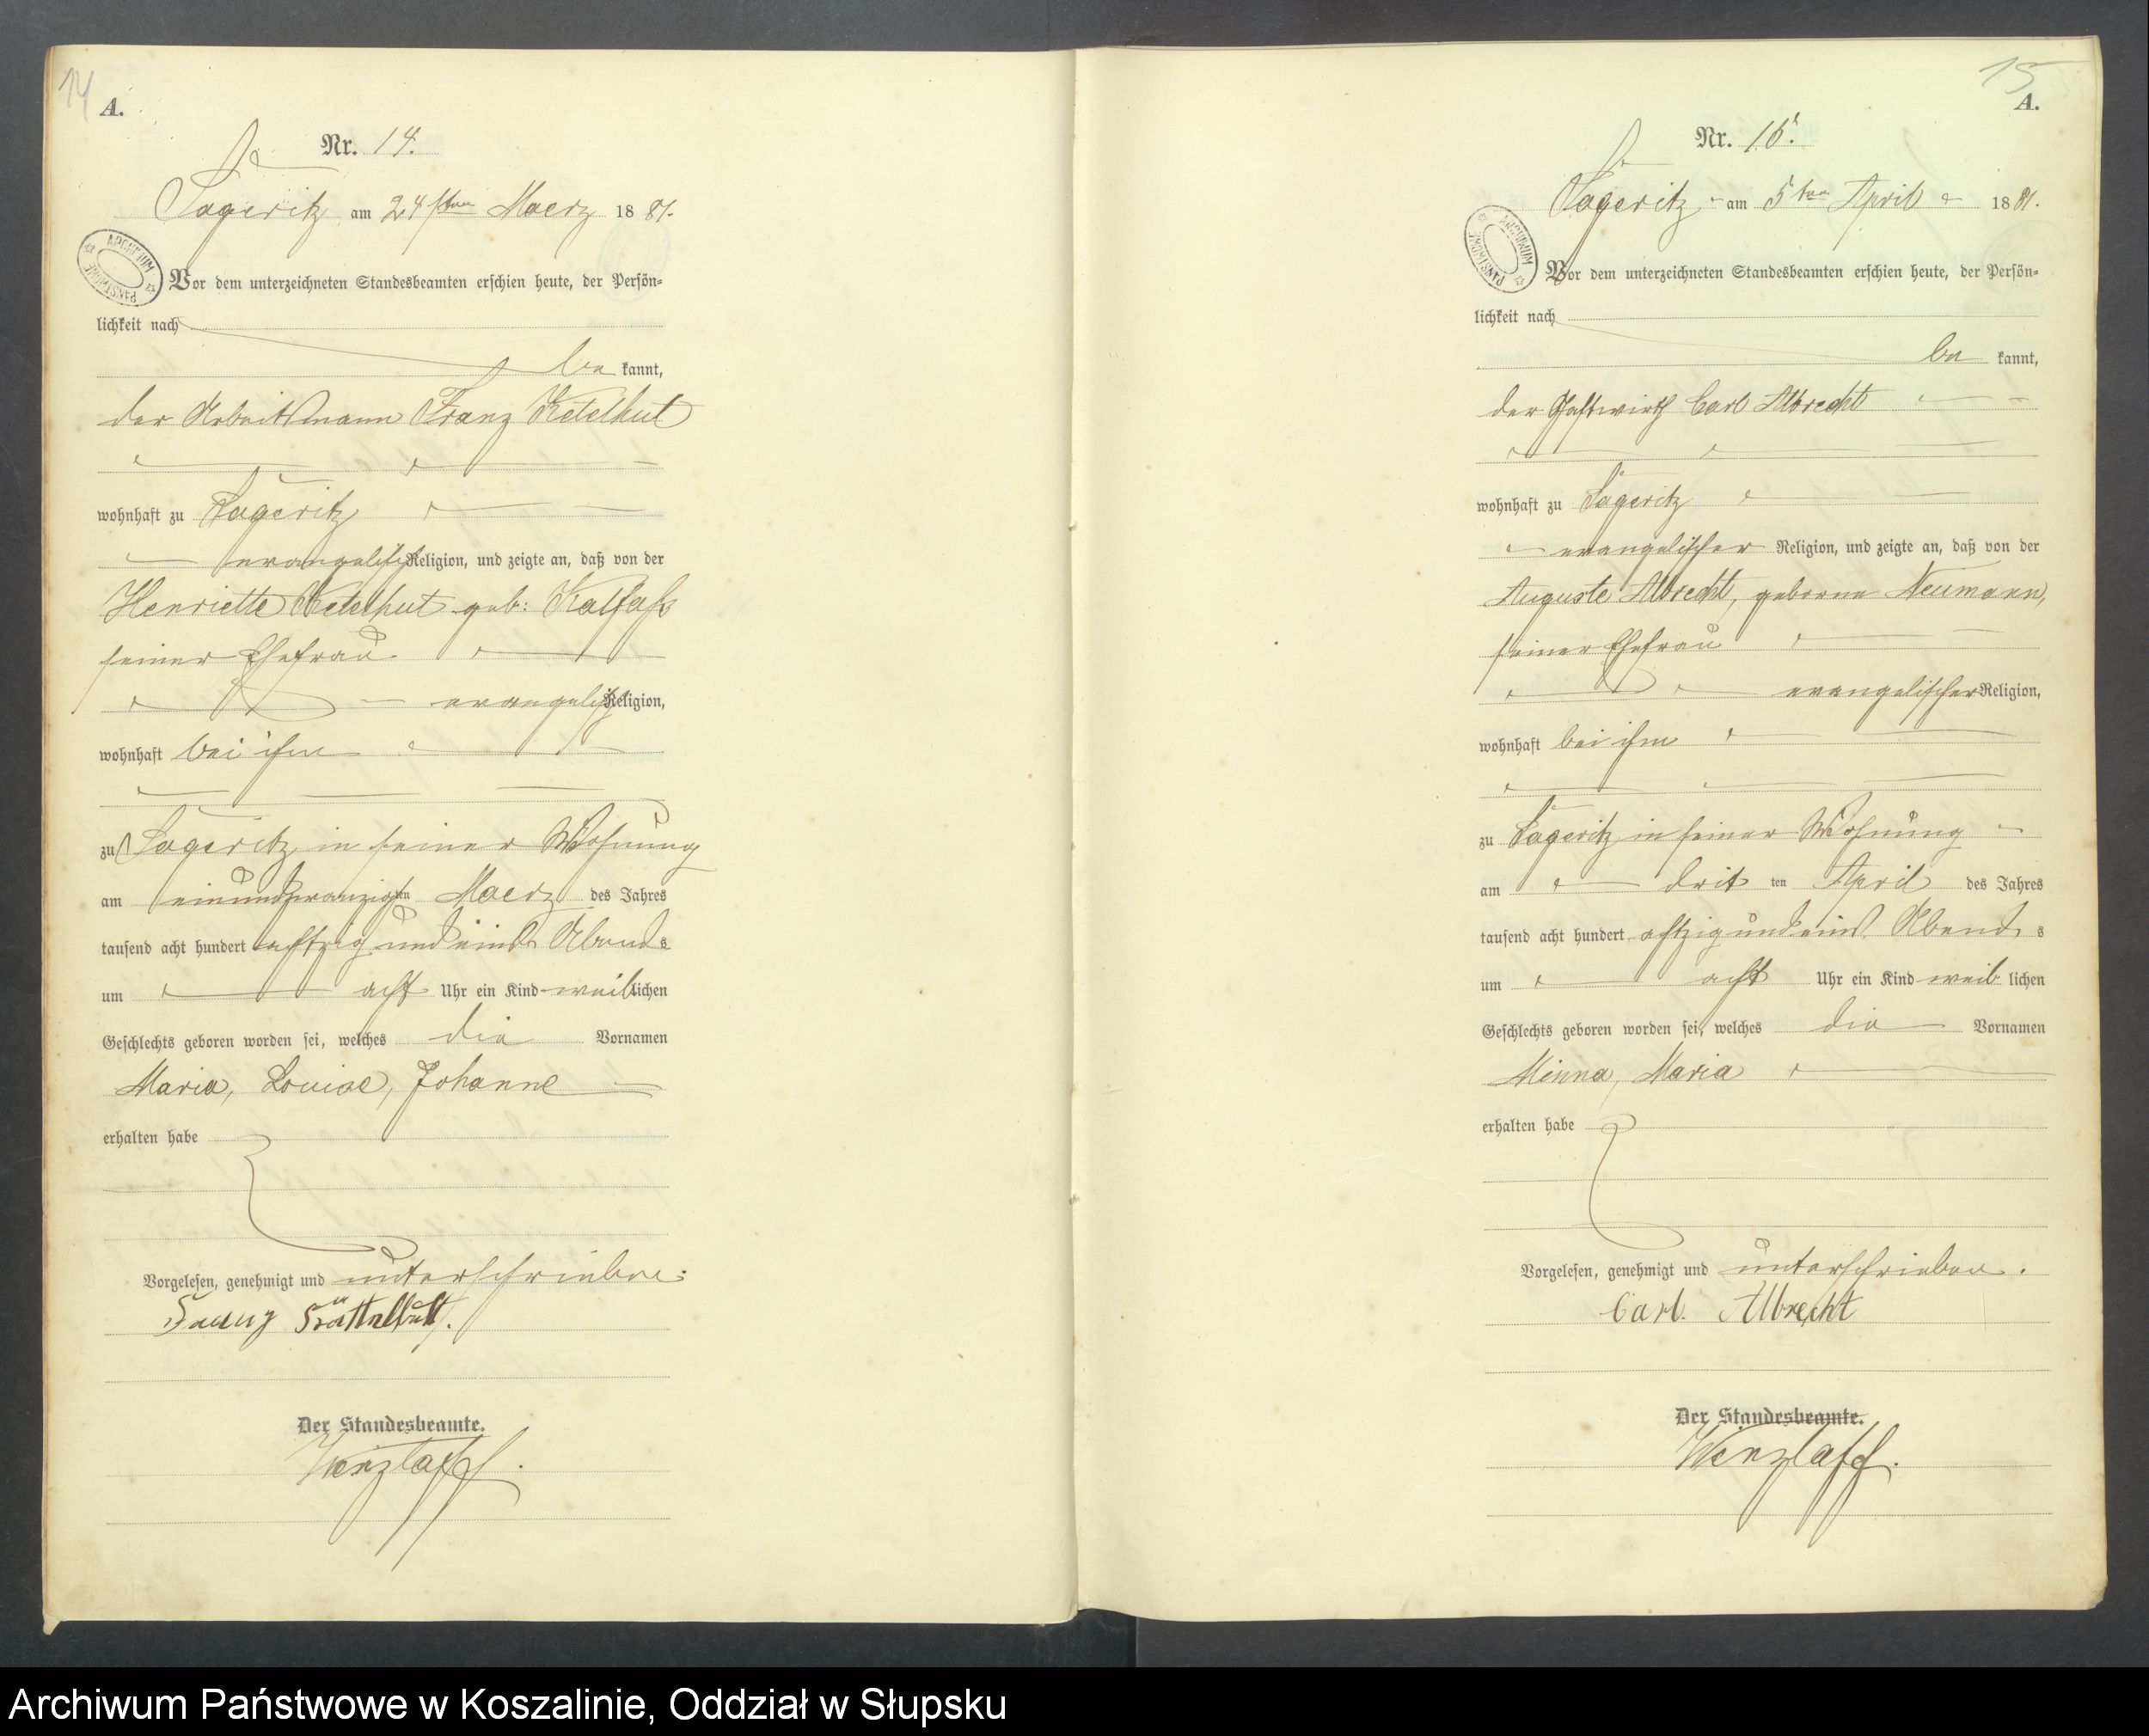 14
A.
Nr. 14.
Sageritz am 24sten Maerz 1881.
ARCHIWUM PAŃSTWOWE
Vor dem unterzeichneten Standesbeamten erschien heute, der Persön-
lichkeit nach
be kannt,
der Arbeitsmann Franz Ketelhut
wohnhaft zu Sageritz
evangelisch Religion, und zeigte an, daß von der
Henriette Ketelhut geb: Kalfaß
seiner Ehefrau
evangelisch Religion,
wohnhaft bei ihm
zu Sageritz in seiner Wohnung
am einundzwanzigsten Maerz des Jahres
tausend acht hundert achtzig und eins Abends
um acht Uhr ein Kind weiblichen
Geschlechts geboren worden sei, welches die Vornamen
Maria, Louise, Johanne
erhalten habe
Vorgelesen, genehmigt und unterschrieben:
Franz
Der Standesbeamte.
Wenzlaff.
15
A.
Nr. 15.
Sageritz am 5ten April 1881.
ARCHIWUM PAŃSTWOWE
Vor dem unterzeichneten Standesbeamten erschien heute, der Persön-
lichkeit nach
be kannt,
der Gastwirth Carl Albrecht
wohnhaft zu Sageritz
evangelischer Religion, und zeigte an, daß von der
Auguste Albrecht, geborne Neumann,
seiner Ehefrau
evangelischer Religion,
wohnhaft bei ihm
zu Sageritz in seiner Wohnung
am drit ten April des Jahres
tausend acht hundert achtzig und eins Abends
um acht Uhr ein Kind weib lichen
Geschlechts geboren worden sei, welches die Vornamen
Minna, Maria
erhalten habe
Vorgelesen, genehmigt und unterschrieben.
Carl Albrecht
Der Standesbeamte.
Wenzlaff.
Archiwum Państwowe w Koszalinie, Oddział w Słupsku